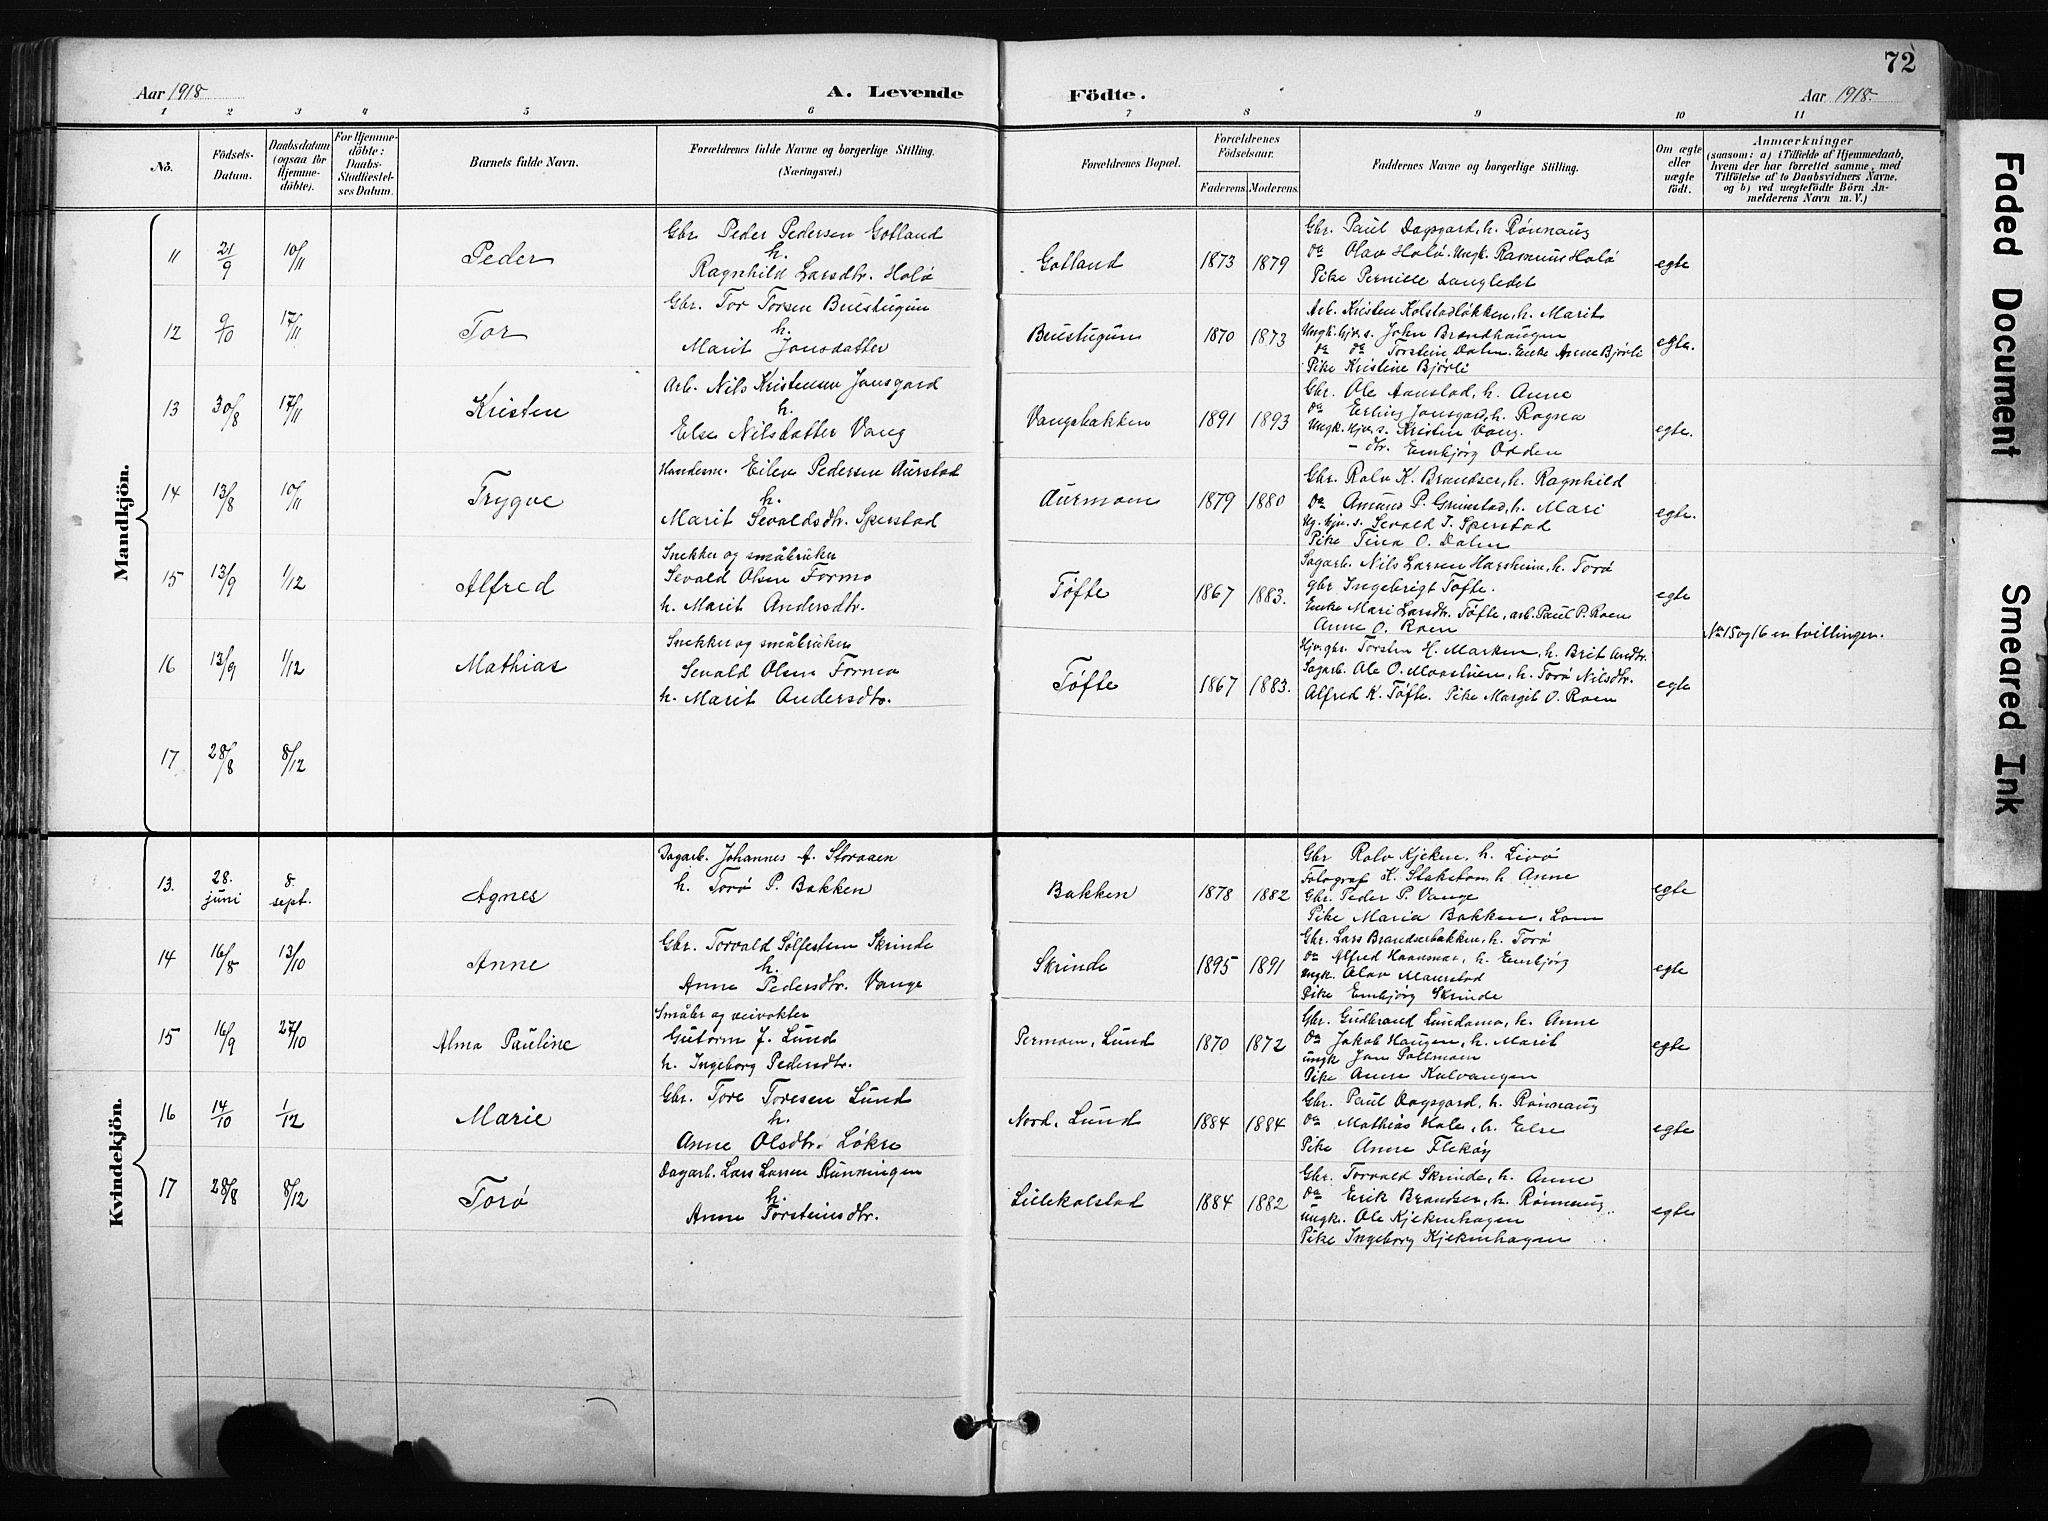 72
Aar 1918
A. Levende
Födte.
Aar 1918.
1 2 3 4 5 6 7 8 9 10 11
No.
Födsels-
Datum.
Daabsdatum
(ogsaa for
Hjemme-
döbte).
For Hjemme-
döbte:
Daabs-
Stadfæstel-
ses Datum.
Barnets fulde Navn.
Forældrenes fulde Navne og borgerlige Stilling.
(Næringsvei.)
Forældrenes Bopæl.
Forældrenes
Födselsaar.
Faderens.
Moderens.
Faddernes Navne og borgerlige Stilling.
Om ægte
eller
uægte
födt.
Anmærkninger
(saasom: a) i Tilfælde af Hjemmedaab,
hvem der har forrettet samme, med
Tilföielse af to Daabsvidners Navne.
og b) ved uægtefödte Börn An-
melderens Navn m. V.)
Mandkjön.
11 21/9 10/11 Peder
Gbr. Peder Pedersen Gotland
h.
Ragnhild Larsdtr. Holø
Gotland 1873 1879
Gbr. Paul Dagsgard, h. Rønnaug
do Olav Holø. Ungk. Rasmus Holø
Pike Pernille Langledet
egte
12 9/10 17/11 Tor
Gbr. Tor Torsen Buestugun
h.
Marit Jonsdatter
Buestugun 1870 1873
Arb. Kristen Kolstadløkken, h. Marit
Ungk. hjv. s. John Brandhaugen
do do Torstein Dalen. Enke Anne Bjørli
Pike Kristine Bjørli
egte.
13 30/8 17/11 Kristen
Arb. Nils Kristensen Jonsgard
h.
Else Nilsdatter Vang
Vangsbakken 1891 1893
Gbr. Ole Aanstad, h. Anne
do Erling Jonsgard, h. Ragna
Ungk. hjv. s. Kristen Vang.
– dtr. Embjørg Odden
egte.
14 13/8 10/11 Trygve
Handelsm. Eilev Pedersen Aurstad
h.
Marit Sevaldsdtr. Sperstad
Aurmoen 1879 1880
Gbr. Rolv K. Brandser, h. Ragnhild
do Amund P. Grimstad, h. Mari
Ug. hjv. s. Sevald T. Sperstad
Pike Tina O. Dalen
egte.
15 13/9 1/12 Alfred
Snekker og småbruker
Sevald Olsen Formo
h. Marit Andersdtr.
Tøfte 1867 1883.
Sagarb. Nils Larsen Harsheim, h. Torø
gbr Ingebrigt Tøfte.
Enke Mari Larsdtr. Tøfte, arb. Paul P. Roen
Anne O. Roen
egte
No 15 og 16 en tvillinger.
16 13/9 1/12 Mathias
Snekker og småbruker
Sevald Olsen Formo
h. Marit Andersdtr.
Tøfte 1867 1883.
Hjv. gbr. Torstein H. Marken, h. Brit Andtr.
Sagarb. Ole O. Moastuen, h. Torø Nilsdtr.
Alfred K. Tøfte. Pike Margit O. Roen
egte
17 28/8 8/12
Kvindekjön.
13. 28. juni 8. sept. Agnes
Dagarb. Johannes A. Storaaen
h. Torø P. Bakken
Bakken 1878 1882
Gbr Rolv Kjeken, h. Livø
Fotograf K. Stakston h. Anne
Gbr. Peder P. Vange
Pike Maria Bakken, Lom
egte
14 16/8 13/10 Anne
Gbr. Torvald Sølfestsen Skrinde
h.
Anne Pedersdtr. Vange
Skrinde 1895 1891
Gbr. Lars Brandserbakken, h. Torø
do Alfred Haansnar, h. Embjørg
Ungk. Olav Maurstad
Pike Embjørg Skrinde
egte
15 16/9 27/10 Alma Pauline
Småbr og veivokter
Gutorm J. Lund
h. Ingeborg Pedersdtr.
Permoen, Lund 1870 1872
Gbr. Gudbrand Lundamo, h. Anne
do Jakob Haugen, h. Marit
ungk Jan Pollmoen
Pike Anna Kulvangen
egte
16 14/10 1/12 Marie
Gbr. Tore Toresen Lund
h.
Anne Olsdtr. Løkre
Nord. Lund 1884 1884
Gbr. Paul Dagsgard, h. Rønnaug
do Mathias Hole, h. Else
Pike Anne Flekøy
egte
17 28/8 8/12 Torø
Dagarb. Lars Larsen Runningen
h.
Anne Torsteinsdtr.
Lillekolstad 1884 1882
Gbr. Torvald Skrinde, h. Anne
do Erik Brandser, h. Rønnaug
Ungk. Ole Kjekenhagen
Pike Ingeborg Kjekenhagen
egte
Faded Document
Smeared Ink